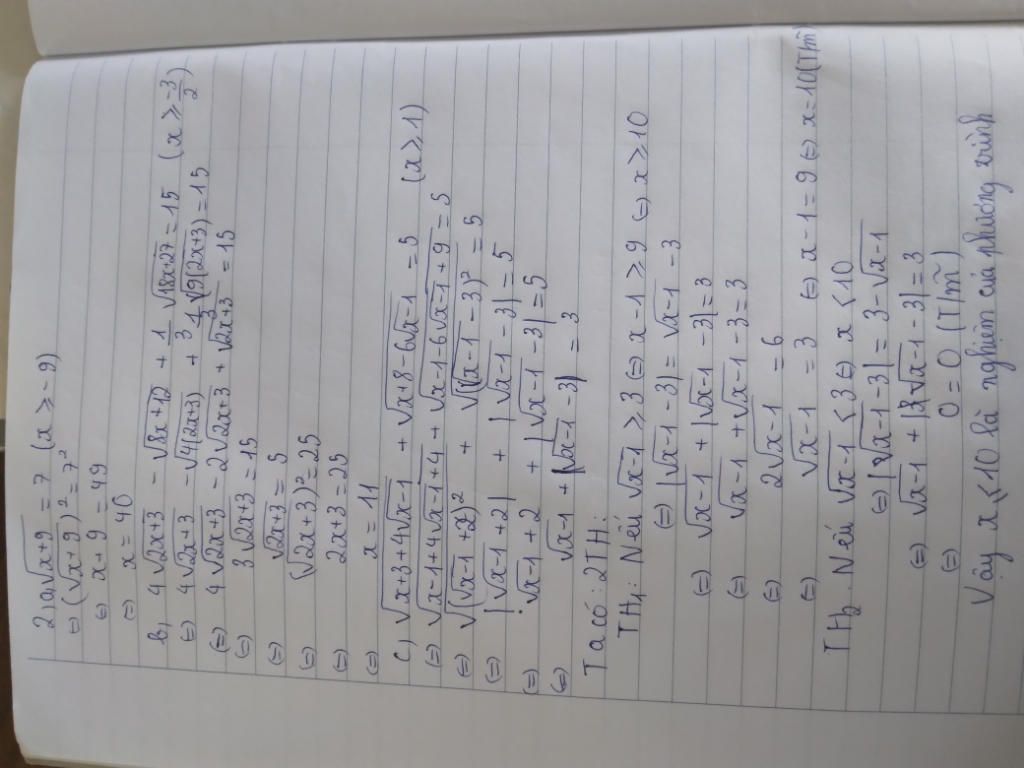 2) a, √(x+9) = 7 (x ≥ -9)
⇔ (√(x+9))² = 7²
⇔ x+9 = 49
⇔ x = 40
b, 4√(2x+3) - √(8x+12) + 1/3 √(18x+27) = 15 (x ≥ -3/2)
⇔ 4√(2x+3) - √(4(2x+3)) + 1/3 √(9(2x+3)) = 15
⇔ 4√(2x+3) - 2√(2x+3) + √(2x+3) = 15
⇔ 3√(2x+3) = 15
⇔ √(2x+3) = 5
⇔ (√(2x+3))² = 25
⇔ 2x+3 = 25
⇔ x = 11
c) √(x+3+4√(x-1)) + √(x+8-6√(x-1)) = 5 (x ≥ 1)
⇔ √(x-1+4√(x-1)+4) + √(x-1-6√(x-1)+9) = 5
⇔ √((√(x-1)+2)²) + √((√(x-1)-3)²) = 5
⇔ |√(x-1)+2| + |√(x-1)-3| = 5
⇔ √(x-1)+2 + |√(x-1)-3| = 5
⇔ √(x-1) + |√(x-1)-3| = 3
Ta có: 2TH:
TH₁: Nếu √(x-1) ≥ 3 ⇔ x-1 ≥ 9 ⇔ x ≥ 10
⇔ |√(x-1)-3| = √(x-1)-3
⇔ √(x-1) + |√(x-1)-3| = 3
⇔ √(x-1) + √(x-1)-3 = 3
⇔ 2√(x-1) = 6
⇔ √(x-1) = 3 ⇔ x-1 = 9 ⇔ x = 10 (T/m)
TH₂. Nếu √(x-1) < 3 ⇔ x < 10
⇔ |√(x-1)-3| = 3-√(x-1)
⇔ √(x-1) + |√(x-1)-3| = 3
⇔ 0 = 0 (T/m)
Vậy x ≤ 10 là nghiệm của phương trình